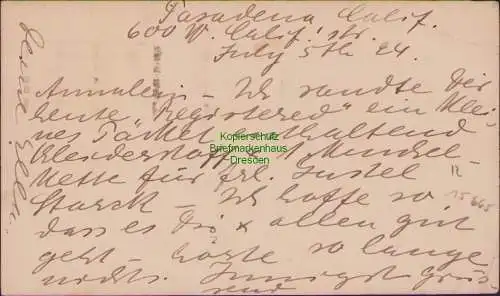 Pasadena Calif.
600 W. Calif. str.
July 5th 24.
Annalein – Ich sandte Dir
heute "registered" ein klei-
nes Päckel enthaltend
Kleiderstoff
Kette für Frl. Gustel
Starck – Ich hoffe so
dass es Dir & allen gut
geht – hörte so lange
nichts. Innigst grüs-
send
Deine
Kopierschutz
Briefmarkenhaus
Dresden